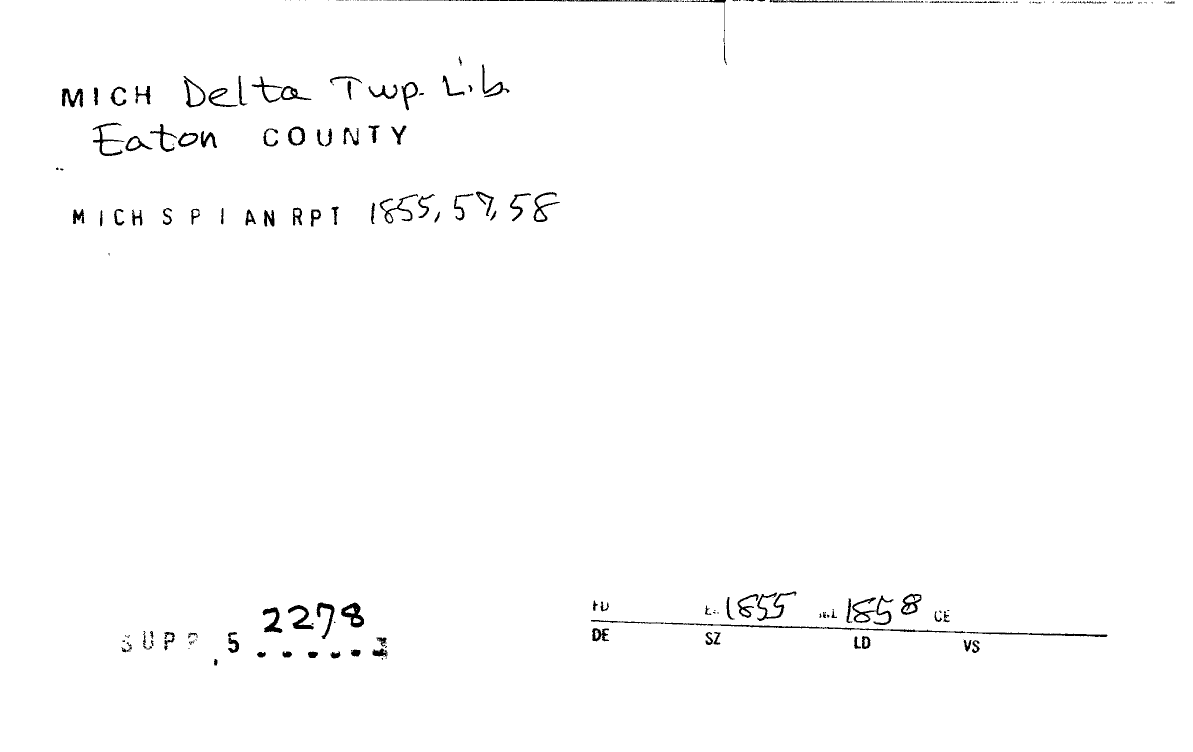 MICH Delta Twp. Lib.
Eaton COUNTY
MICH S P I AN RPT 1855, 57, 58
2278
SUPP 5
FD 1855 1858 CE
DE SZ LD VS